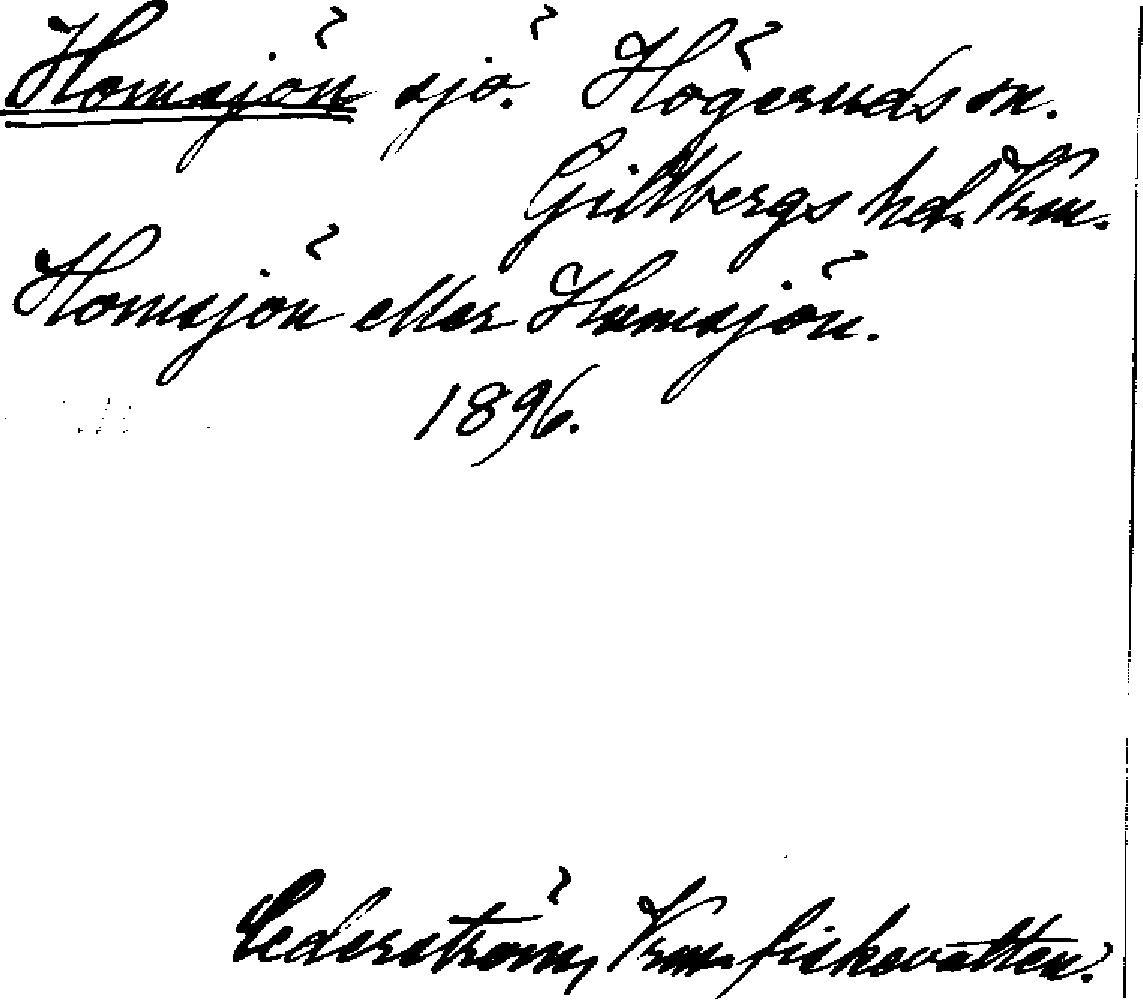 Homsjön sjö. Högeruds sn.
Gillbergs hd. Vrm.
Homsjön eller Humsjön.
1896.
Cederström, Vrm. fiskevatten.